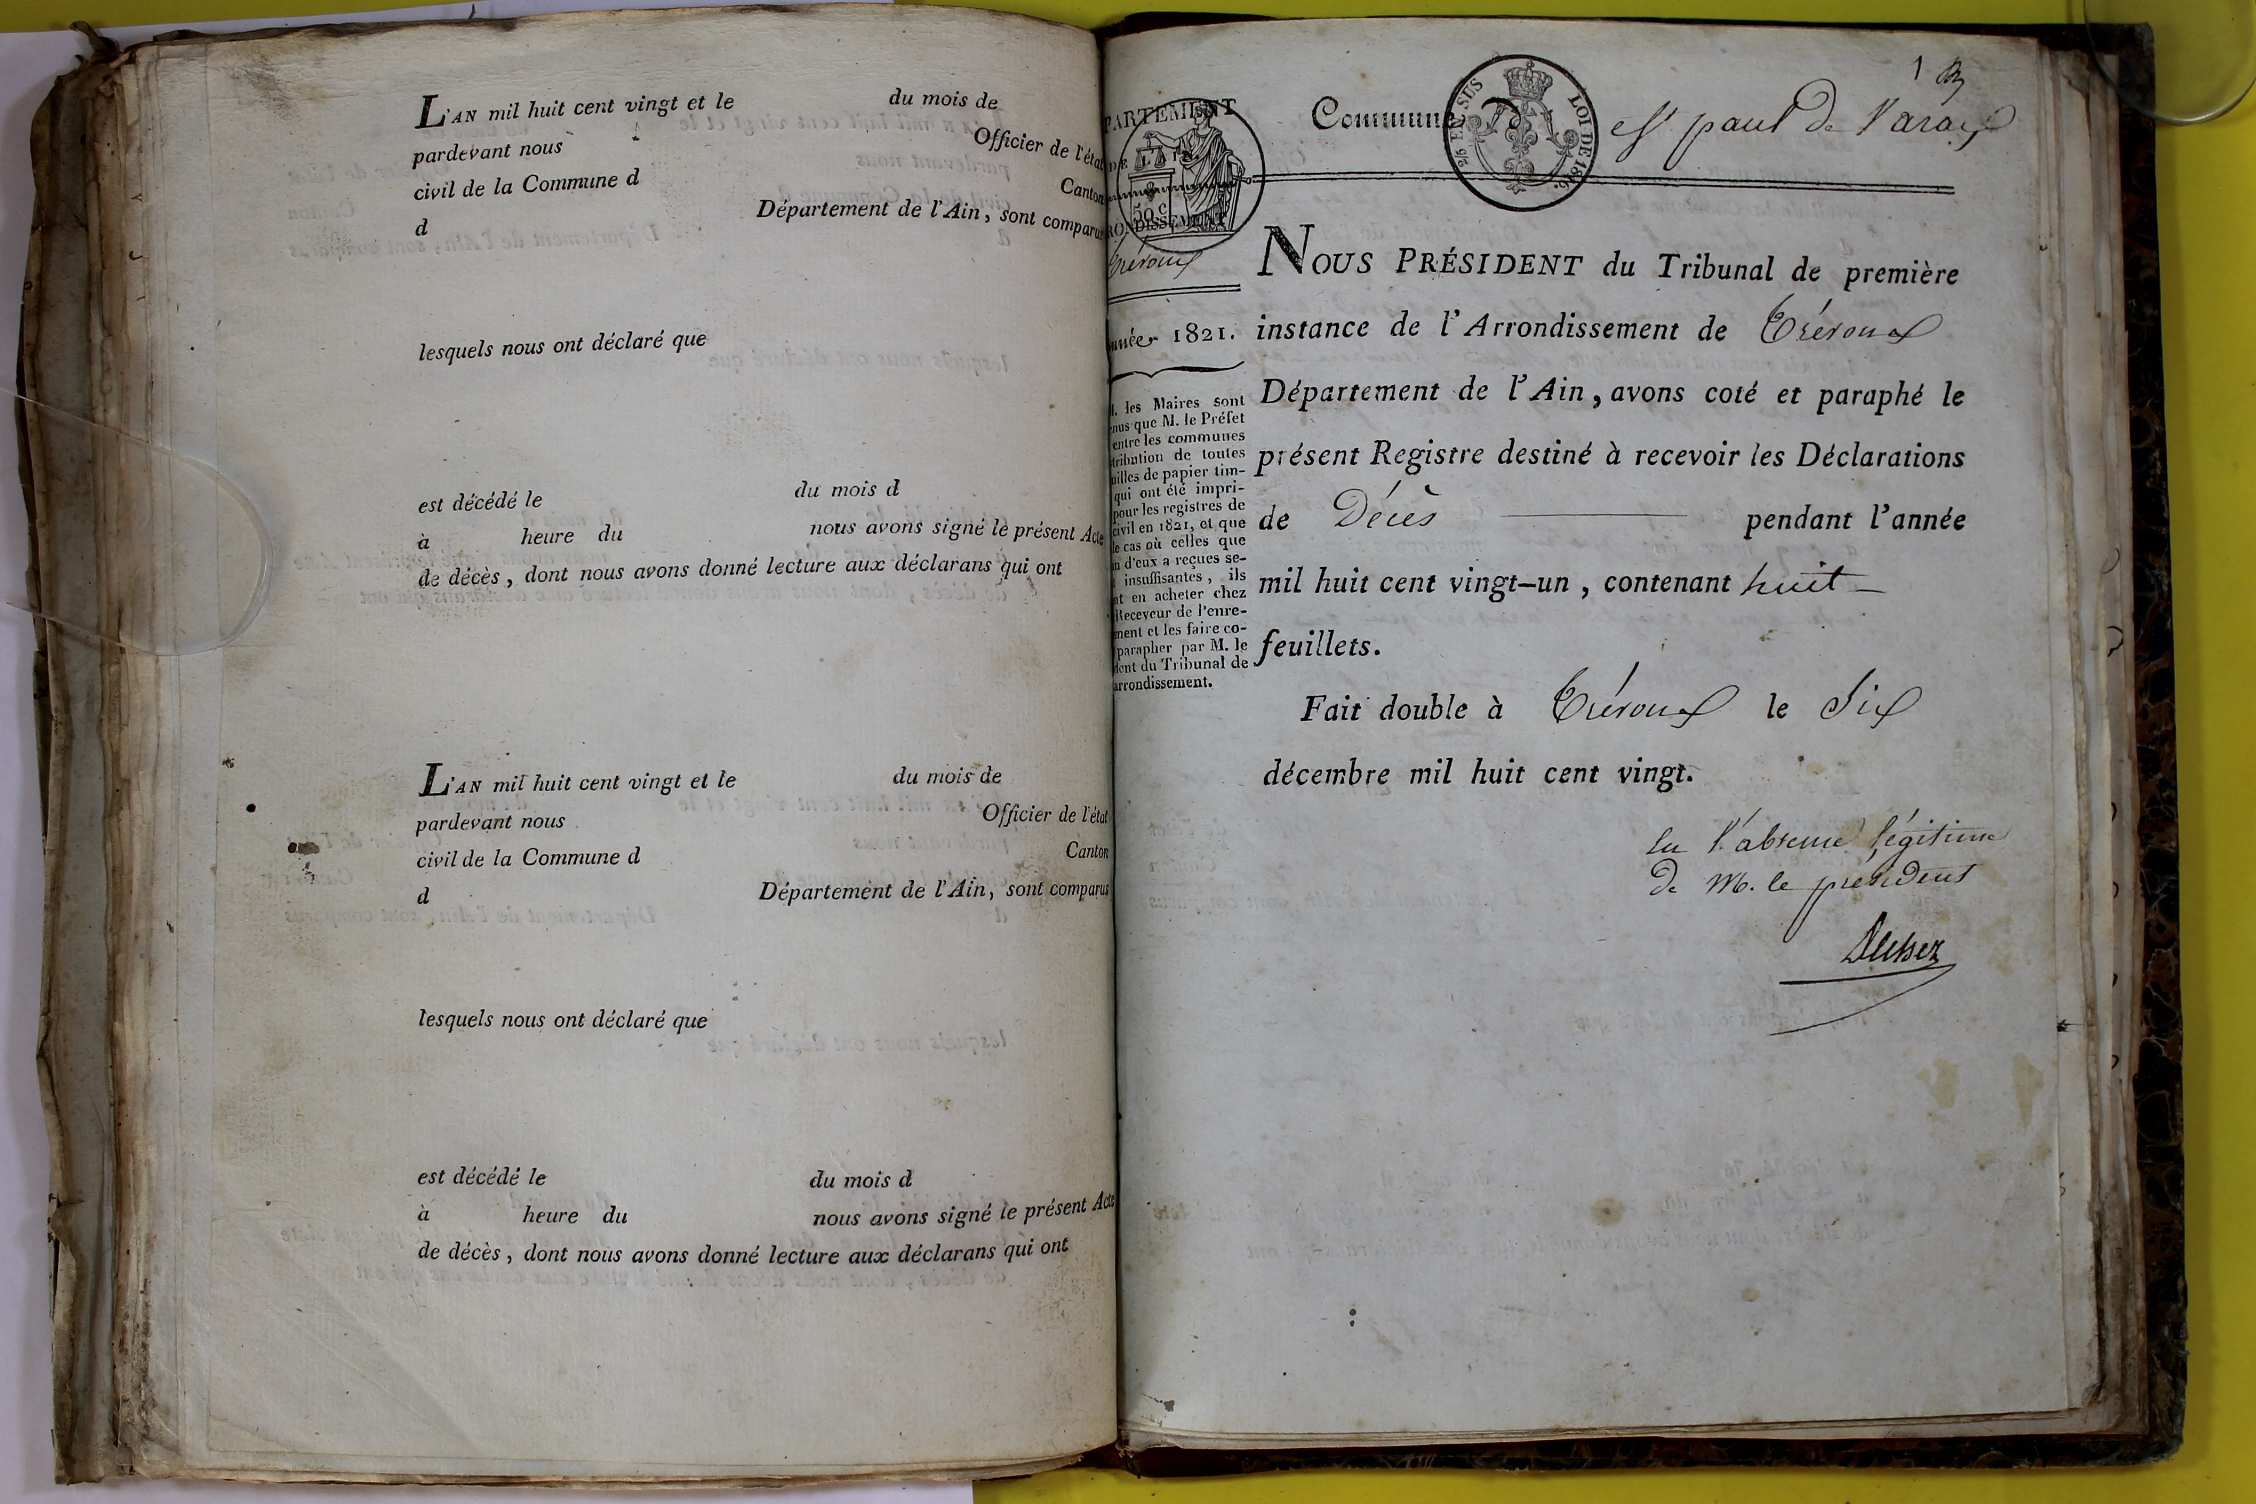 L'AN mil huit cent vingt et le du mois de
pardevant nous Officier de l'état
civil de la Commune d Canton
d Département de l'Ain, sont comparus
lesquels nous ont déclaré que
est décédé le du mois d
à heure du nous avons signé le présent Acte
de décès, dont nous avons donné lecture aux déclarans qui ont
L'AN mil huit cent vingt et le du mois de
pardevant nous Officier de l'état
civil de la Commune d Canton
d Département de l'Ain, sont comparus
lesquels nous ont déclaré que
est décédé le du mois d
à heure du nous avons signé le présent Acte
de décès, dont nous avons donné lecture aux déclarans qui ont
1
PARTEMENT
DE L'AIN
50 c
RONDISSEMENT
Trévoux
nnée 1821.
M. les Maires sont
enus que M. le Préfet
entre les communes
tribution de toutes
uilles de papier tim-
qui ont été impri-
pour les registres de
civil en 1821, et que
le cas où celles que
n d'eux a reçues se-
insuffisantes, ils
nt en acheter chez
Receveur de l'enre-
ment et les faire co-
parapher par M. le
dent du Tribunal de
arrondissement.
Commune de St paul de Varax
LOI DE 1816.
NOUS PRÉSIDENT du Tribunal de première
instance de l'Arrondissement de Trévoux
Département de l'Ain, avons coté et paraphé le
présent Registre destiné à recevoir les Déclarations
de Décès pendant l'année
mil huit cent vingt-un, contenant huit
feuillets.
Fait double à Trévoux le Six
décembre mil huit cent vingt.
En l'absence légitime
De M. le président